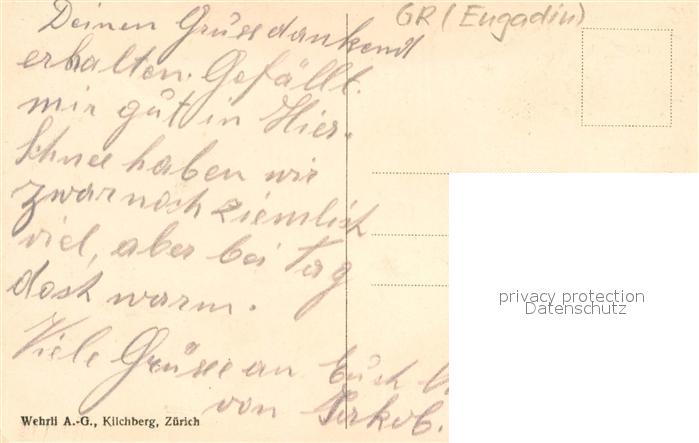 GR (Engadin)
Deinen Gruss dankend
erhalten. Gefällt
mir gut in Hier.
Schnee haben wir
zwar noch ziemlich
viel, aber bei Tag
doch warm.
Viele Grüsse an Euch
von
Wehrli A.-G., Kilchberg, Zürich
privacy protection
Datenschutz